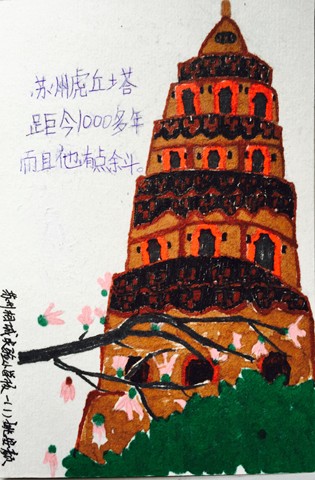 苏州虎丘塔
距今1000多年
而且他有点斜。
苏州相城实验小学校一(1)姚